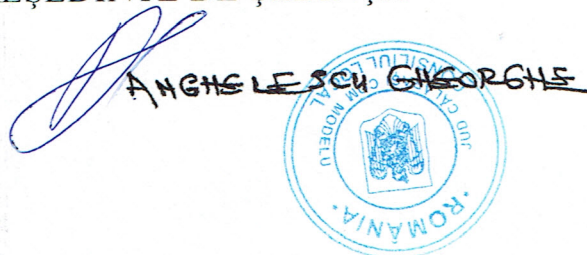 ANGHELESCU GHEORGHE
ROMÂNIA
JUD CĂL
COM MODELU
CONSILIUL LOCAL